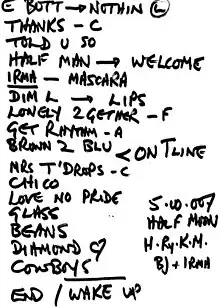 E BOTT → NOTHIN Ⓛ
THANKS - C
TOLD U SO
HALF MAN → WELCOME
IRMA - MASCARA
DIM L → LIPS
LONELY 2GETHER - F
GET RHYTHM - A
BROWN 2 BLU < ON T LINE
MRS T'DROPS - C
CHICO
LOVE NO PRIDE
GLASS
BEANS
DIAMOND ♡
COWBOYS
END / WAKE UP
5.10.007
HALF MOON
H.Ry.K.M.
BJ + IRMA